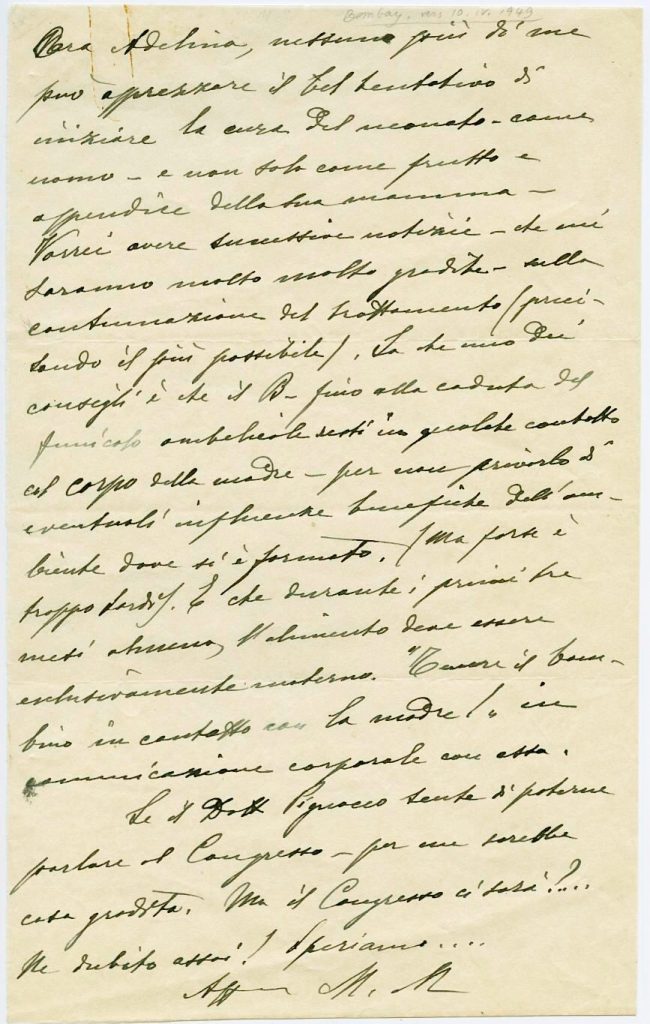 Bombay, vers 10. IV. 1949
Cara Adelina, nessuno più di me
può apprezzare il bel tentativo di
iniziare la cura del neonato - come
uomo - e non solo come frutto e
appendice della sua mamma -
Vorrei avere successive notizie - che mi
saranno molto molto gradite - sulla
continuazione del trattamento (preci-
sando il più possibile). La mio dei
consigli è che il B- fino alla caduta del
funicolo ombelicale resti in qualche contatto
col corpo della madre - per non privarlo di
eventuali influenze benefiche dell'am-
biente dove si è formato. (Ma forse è
troppo tardi). E che durante i primi tre
mesi almeno, l'alimento deve essere
esclusivamente materno. "Tenere il bam-
bino in contatto con la madre!" in
comunicazione corporale con essa.
Se il Dott Pignocco sente di poterne
parlare al Congresso - per me sarebbe
cosa gradita. Ma il Congresso ci sarà?....
Ne dubito assai! Speriamo....
Aff M. M